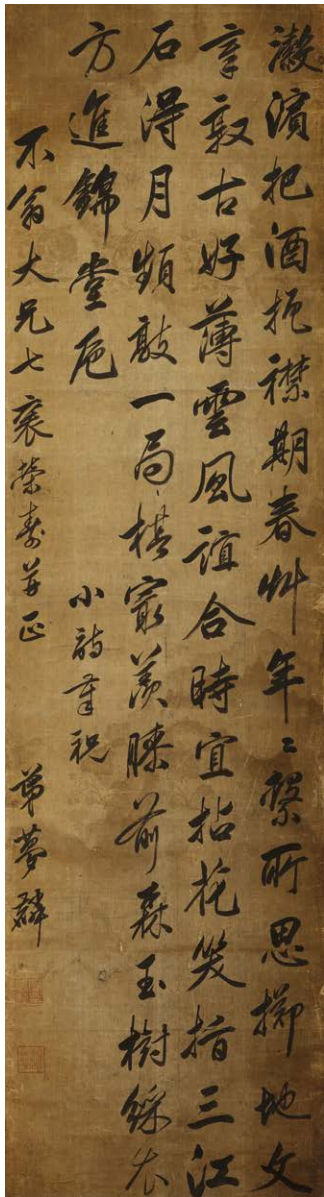 濱把酒挹襟期春艸年〻繫所思擲地文
章敦古好薄雲風誼合時宜拈花笑指三江
石淂月頻敲一局棋㝡羨膝前森玉樹綵衣
方進錦堂卮
小詩奉祝
不翁大兄七袠榮壽并正
弟夢麟